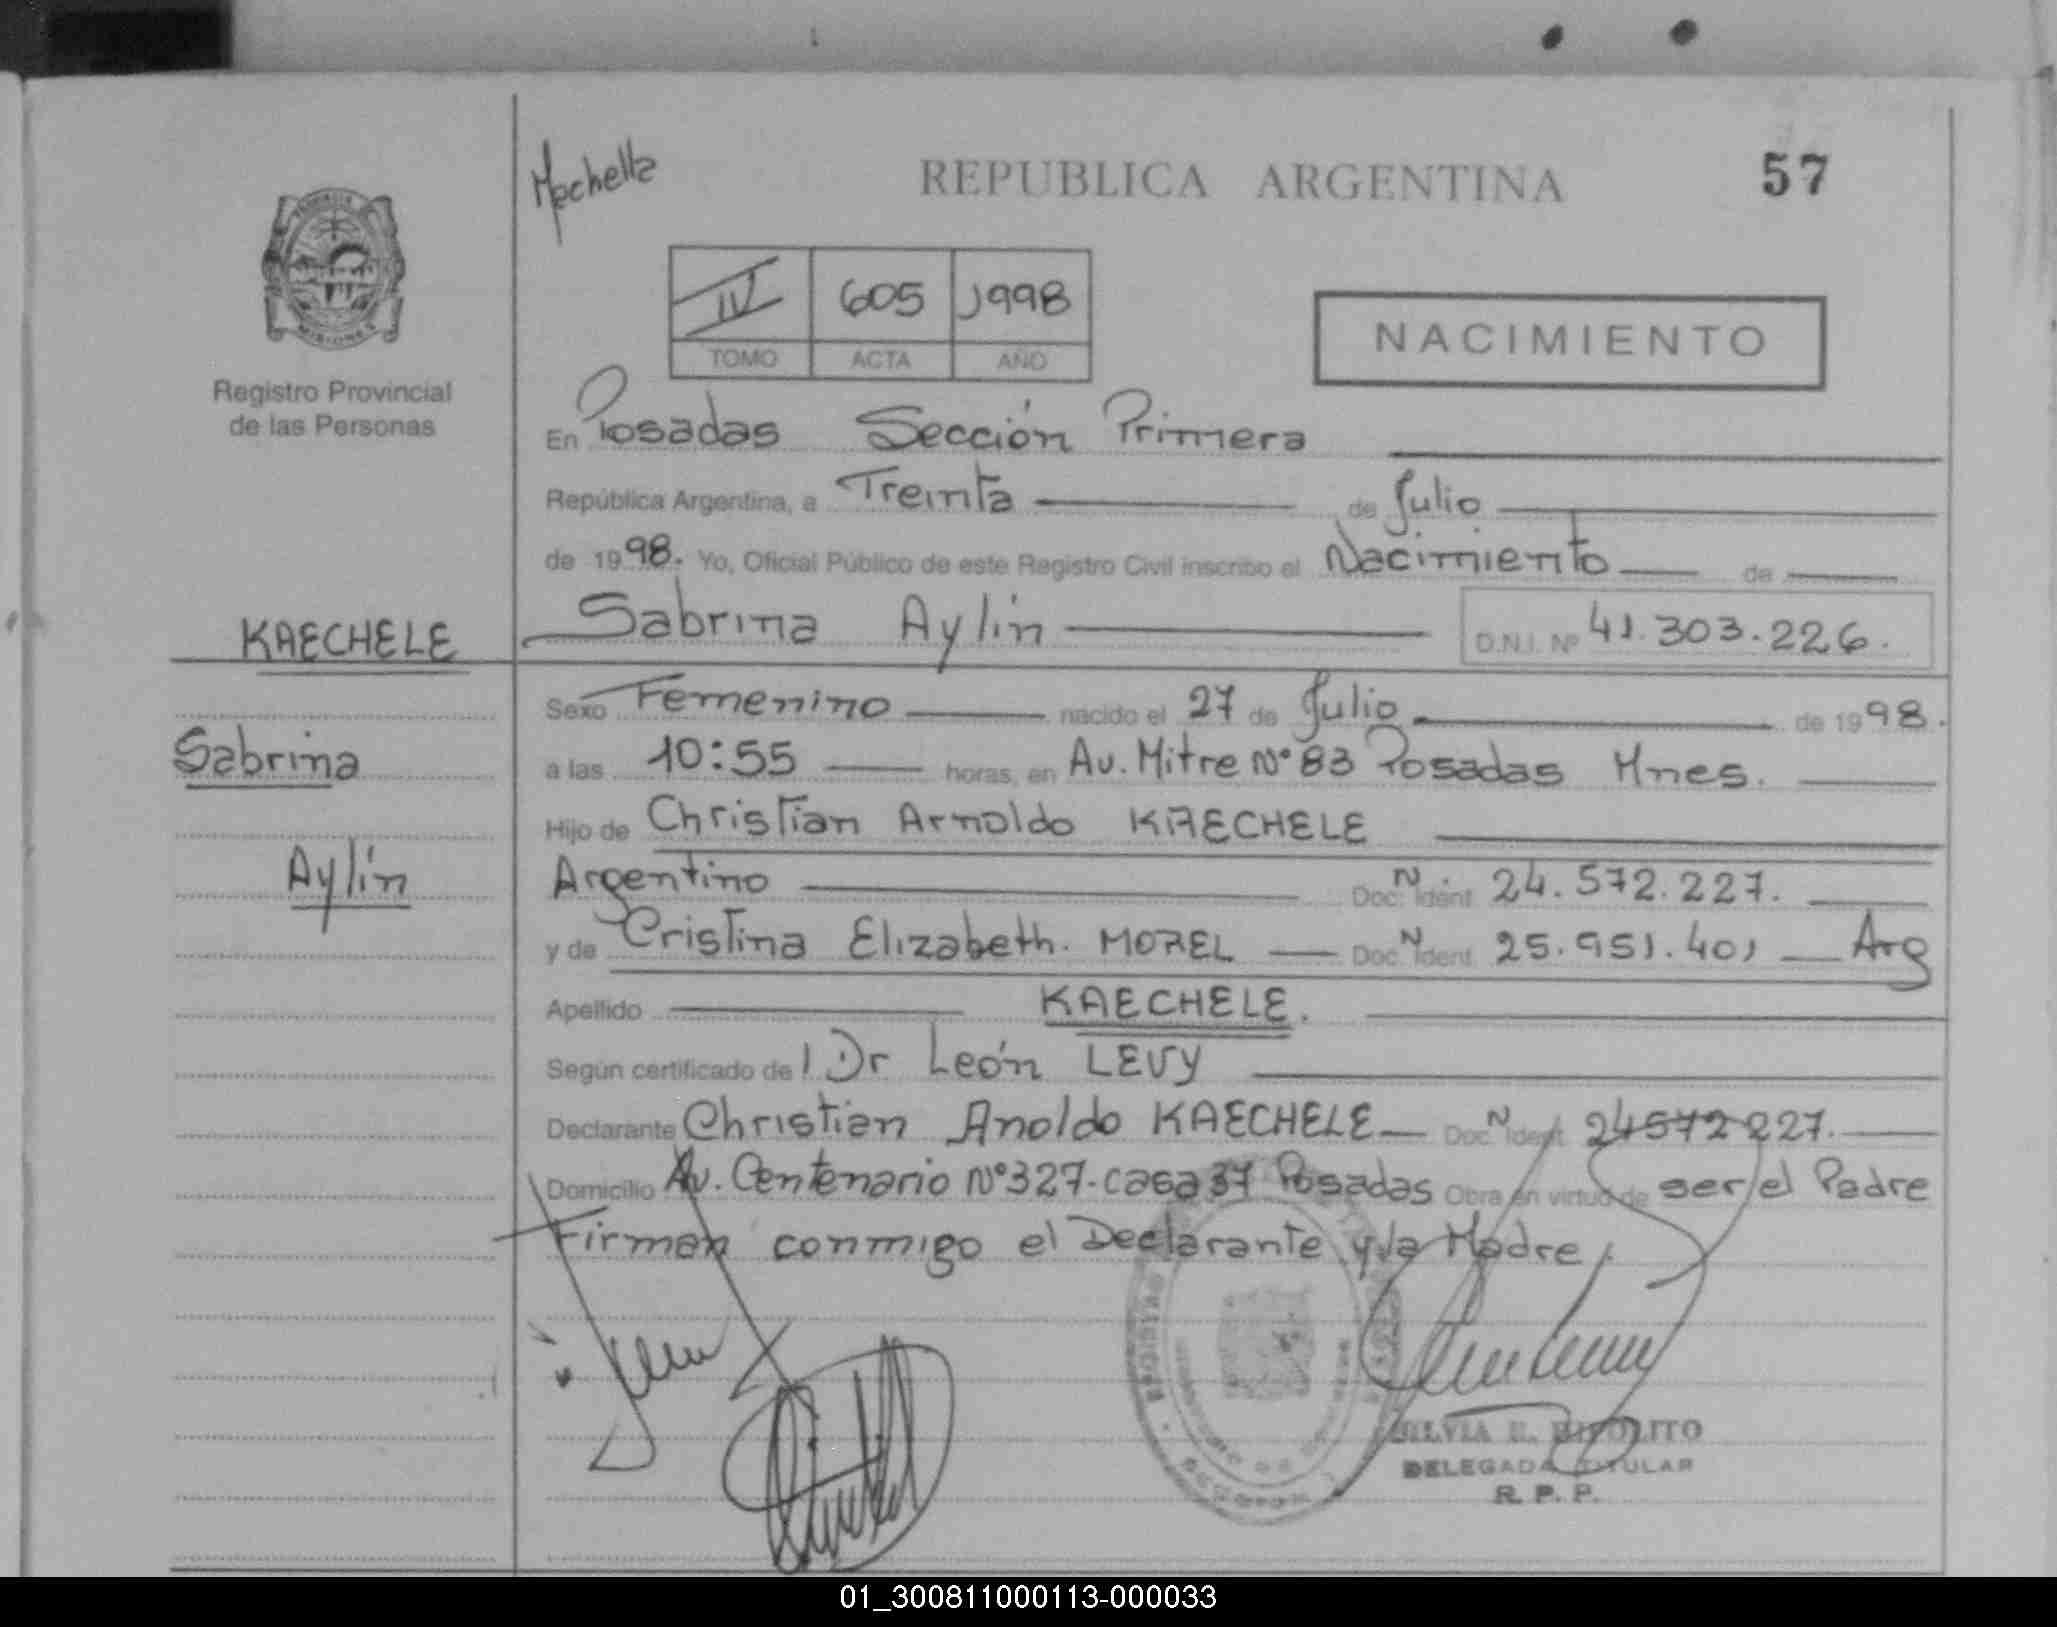 Machella
REPUBLICA ARGENTINA
57
IV 605 1998
TOMO ACTA AÑO
NACIMIENTO
PROVINCIA DE MISIONES
Registro Provincial
de las Personas
En Posadas Sección Primera
República Argentina, a Treinta de Julio
de 1998. Yo, Oficial Público de este Registro Civil inscribo el Nacimiento de
KAECHELE
Sabrina Aylin D.N.I. Nº 41.303.226.
Sexo Femenino nacido el 27 de Julio de 1998.
Sabrina
a las 10:55 horas, en Av. Mitre Nº 83 Posadas Mnes.
Hijo de Christian Arnoldo KAECHELE
Aylin
Argentino Doc. N Ident. 24.572.227.
y de Cristina Elizabeth. MOREL Doc. N Ident. 25.951.401 Arg
Apellido KAECHELE.
Según certificado de l Dr León LEVY
Declarante Christian Anoldo KAECHELE Doc. N Ident. 24572227.
Domicilio Av. Centenario Nº 327-casa 37 Posadas Obra en virtud de ser el Padre
Firman conmigo el Declarante y la Madre.
SILVIA E. HIPOLITO
DELEGADA TITULAR
R. P. P.
01_300811000113-000033